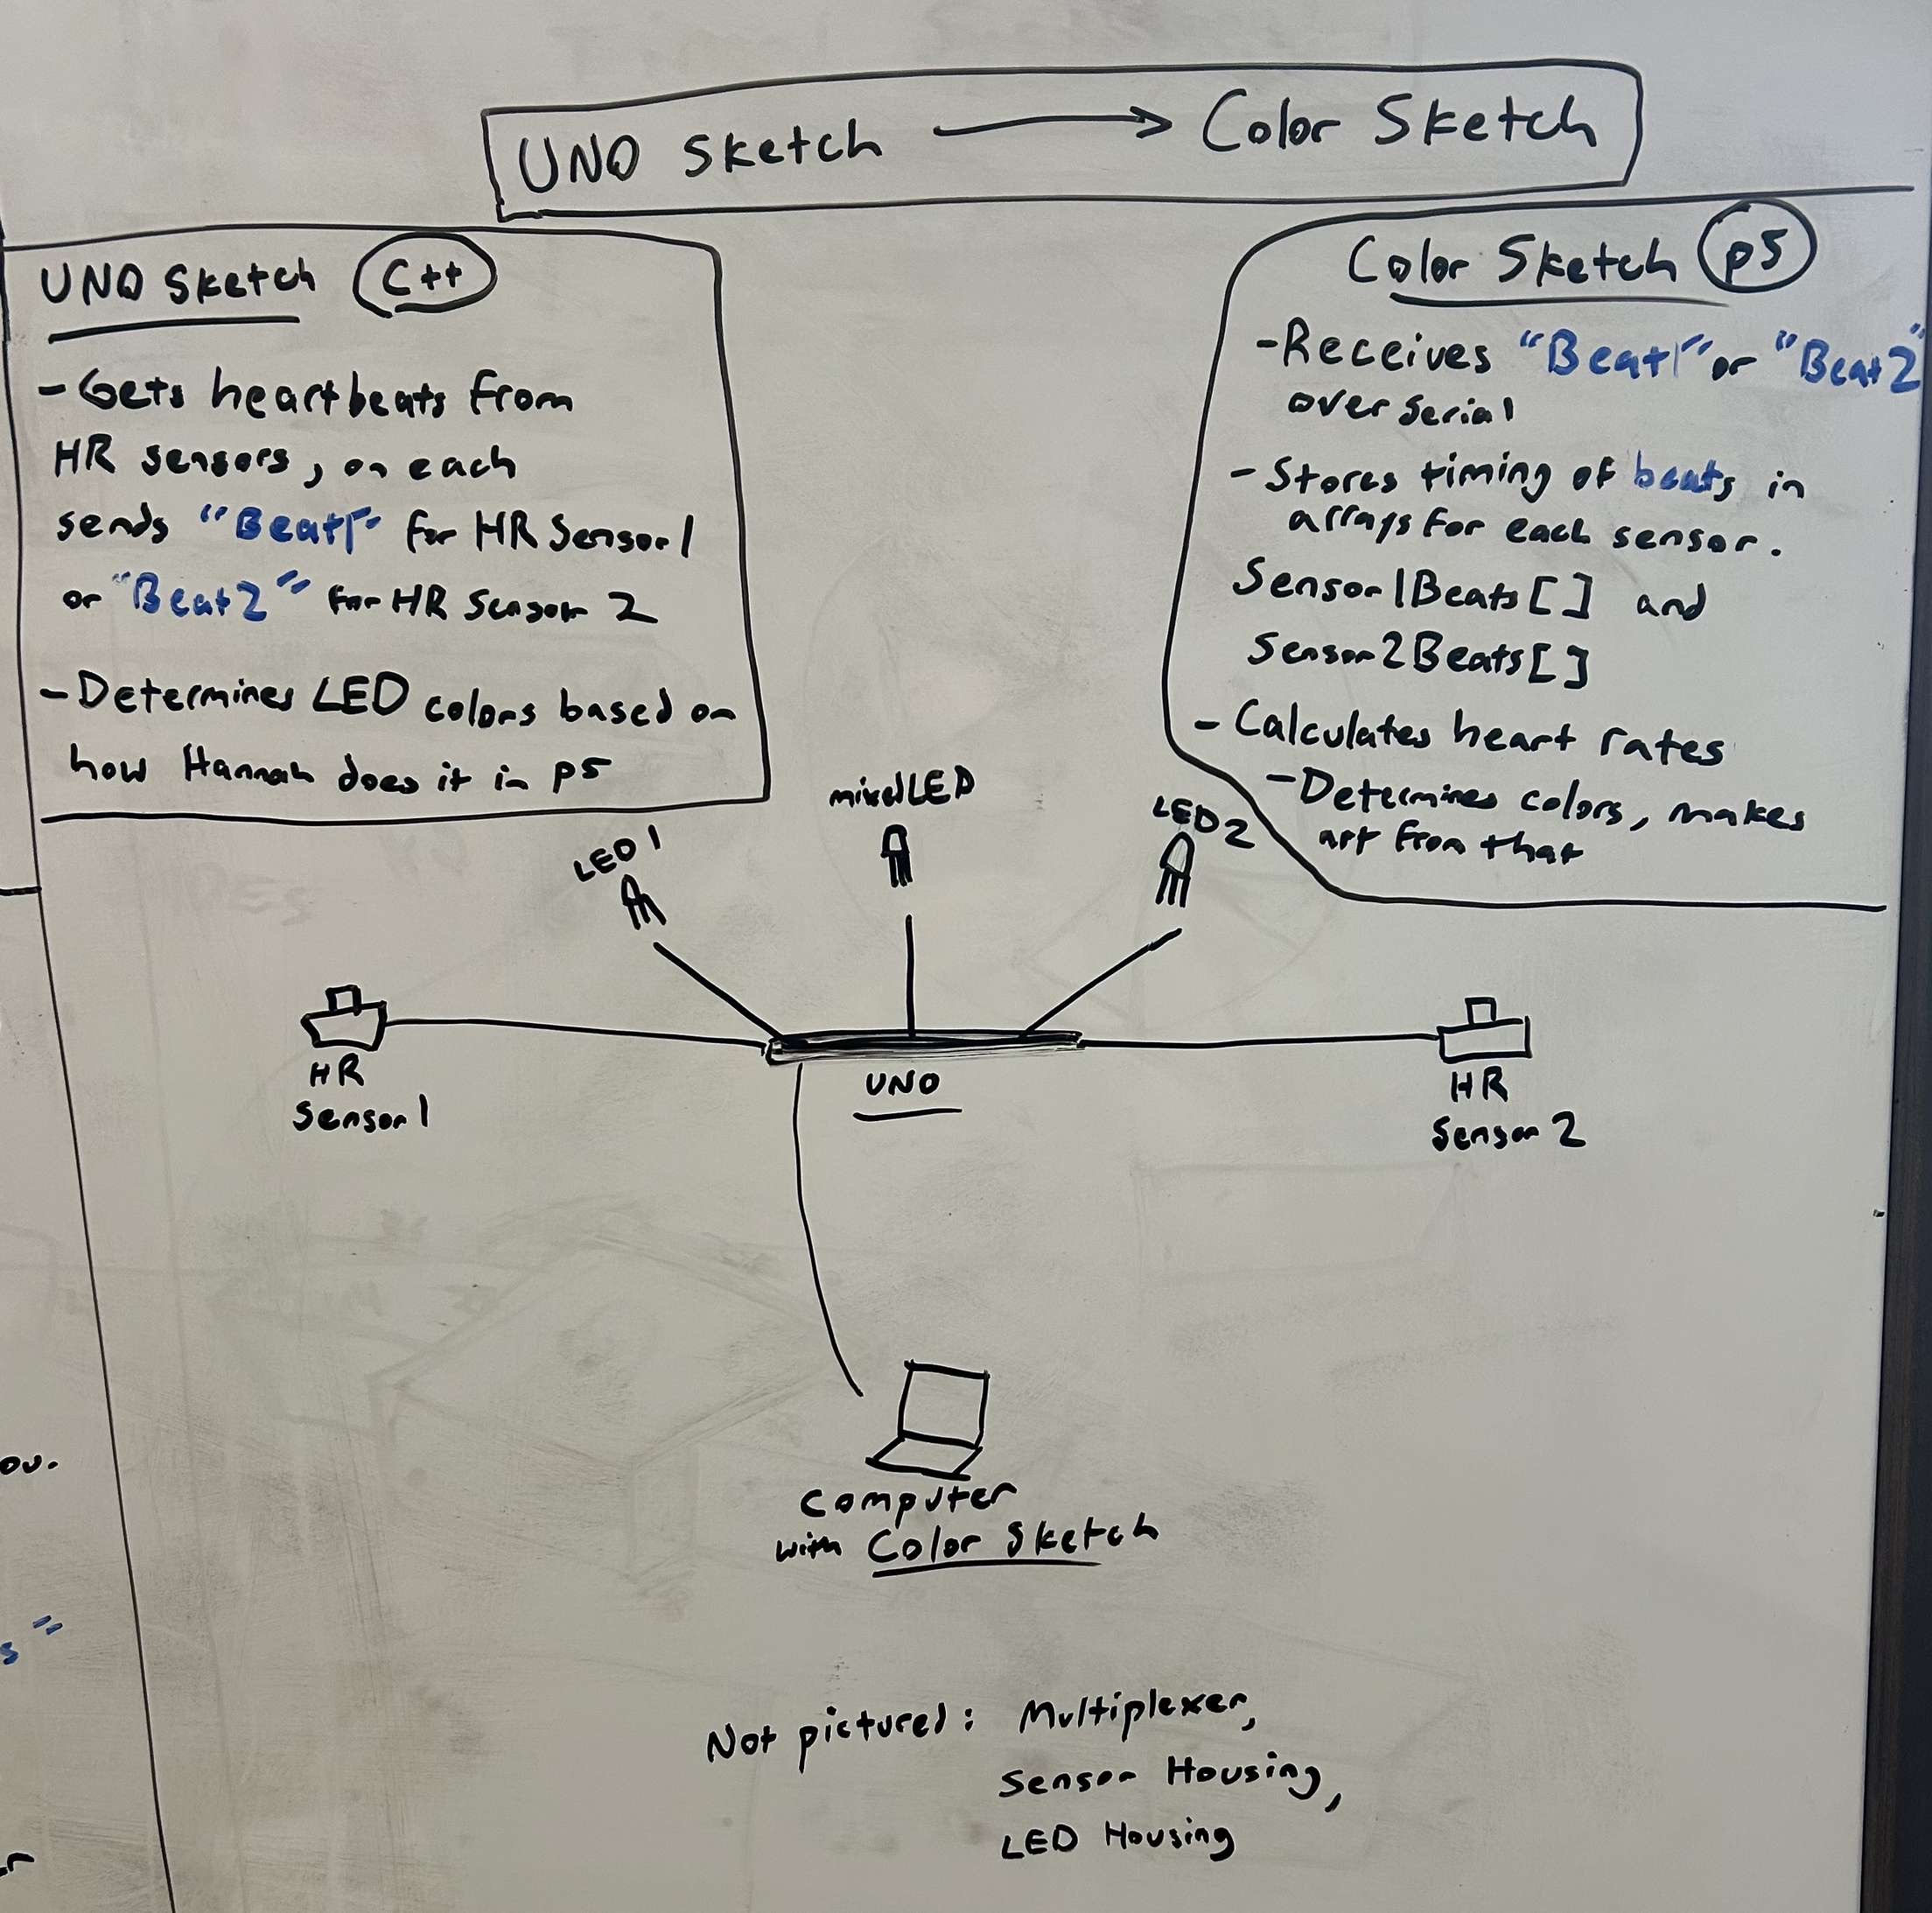 UNO Sketch → Color Sketch
UNO Sketch C++
- Gets heartbeats from
HR sensors, on each
sends "Beat1" for HR Sensor1
or "Beat2" for HR Sensor 2
- Determines LED colors based on
how Hannah does it in p5
Color Sketch p5
- Receives "Beat1" or "Beat2"
over serial
- Stores timing of beats in
arrays for each sensor.
Sensor1Beats[] and
Sensor2Beats[]
- Calculates heart rates
- Determines colors, makes
art from that
LED 1
mixedLED
LED 2
HR
Sensor 1
UNO
HR
Sensor 2
Computer
with Color Sketch
Not pictured: Multiplexer,
Sensor Housing,
LED Housing
ou.
s"